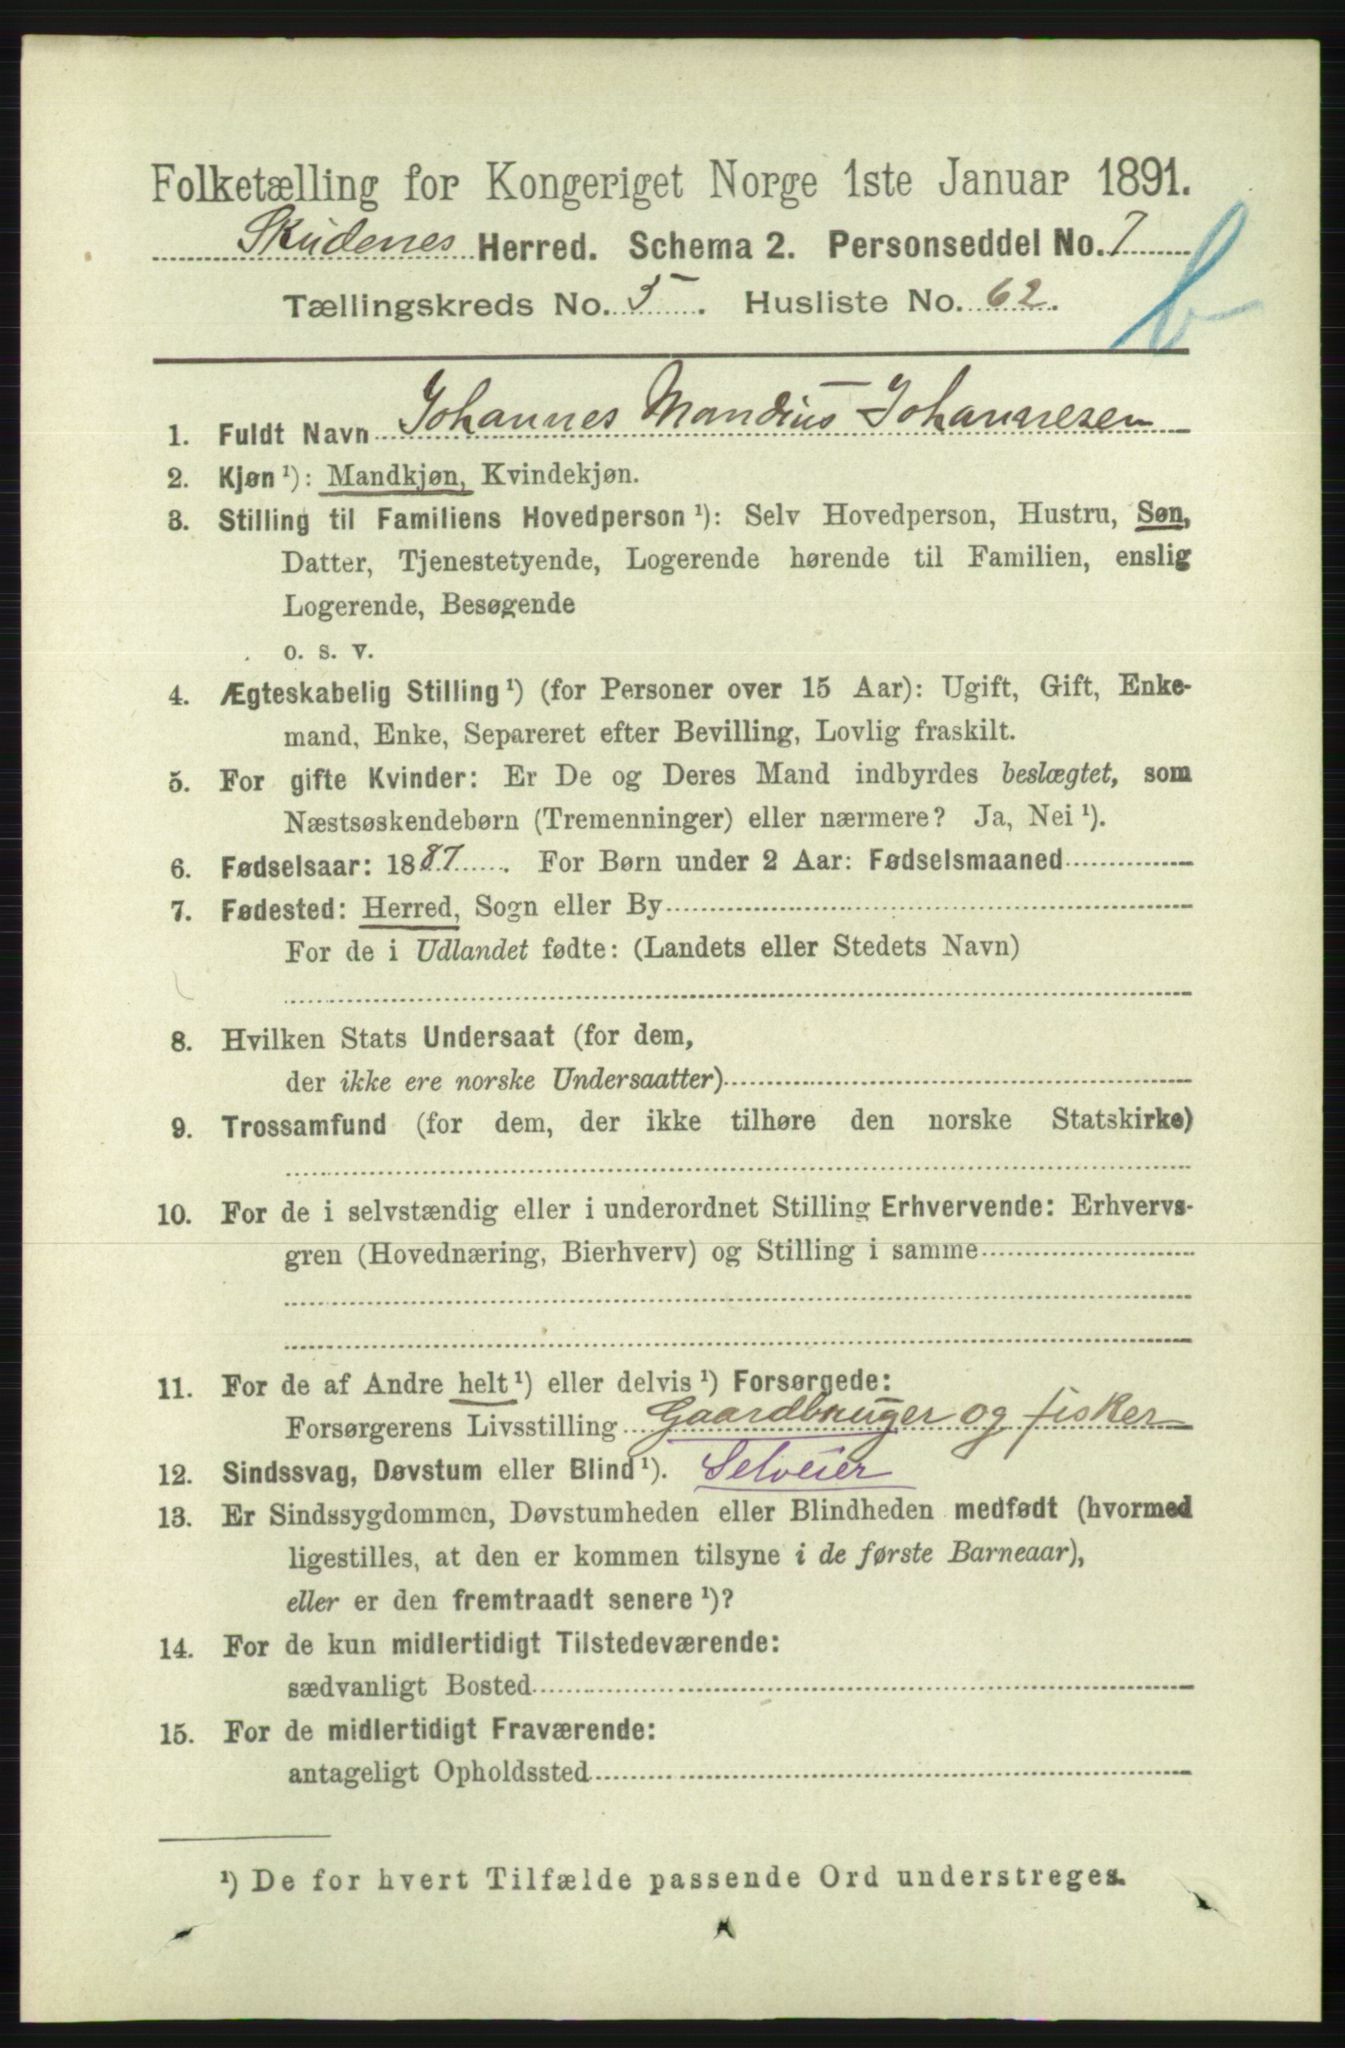 Folketælling for Kongeriget Norge 1ste Januar 1891.
Skudenes Herred. Schema 2. Personseddel No. 7
Tællingskreds No. 5. Husliste No. 62.
b
1. Fuldt Navn Johannes Mandius Johannesen
2. Kjøn ¹): Mandkjøn, Kvindekjøn.
3. Stilling til Familiens Hovedperson ¹): Selv Hovedperson, Hustru, Søn,
Datter, Tjenestetyende, Logerende hørende til Familien, enslig
Logerende, Besøgende
o. s. v.
4. Ægteskabelig Stilling ¹) (for Personer over 15 Aar): Ugift, Gift, Enke-
mand, Enke, Separeret efter Bevilling, Lovlig fraskilt.
5. For gifte Kvinder: Er De og Deres Mand indbyrdes beslægtet, som
Næstsøskendebørn (Tremenninger) eller nærmere? Ja, Nei ¹).
6. Fødselsaar: 1887. For Børn under 2 Aar: Fødselsmaaned
7. Fødested: Herred, Sogn eller By
For de i Udlandet fødte: (Landets eller Stedets Navn)
8. Hvilken Stats Undersaat (for dem,
der ikke ere norske Undersaatter)
9. Trossamfund (for dem, der ikke tilhøre den norske Statskirke)
10. For de i selvstændig eller i underordnet Stilling Erhvervende: Erhvervs-
gren (Hovednæring, Bierhverv) og Stilling i samme
11. For de af Andre helt ¹) eller delvis ¹) Forsørgede:
Forsørgerens Livsstilling Gaardbruger og fisker
12. Sindssvag, Døvstum eller Blind ¹). Selveier
13. Er Sindssygdommen, Døvstumheden eller Blindheden medfødt (hvormed
ligestilles, at den er kommen tilsyne i de første Barneaar),
eller er den fremtraadt senere ¹)?
14. For de kun midlertidigt Tilstedeværende:
sædvanligt Bosted
15. For de midlertidigt Fraværende:
antageligt Opholdssted
¹) De for hvert Tilfælde passende Ord understreges.